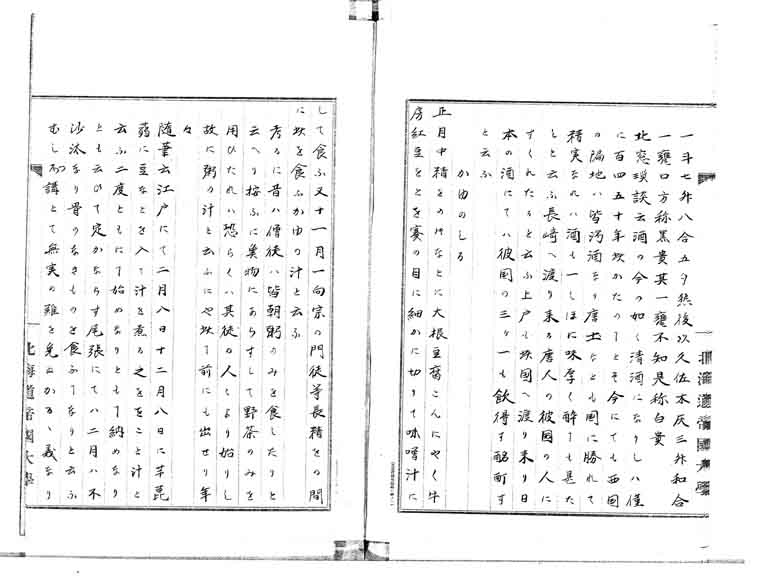 一斗七升八合五夕然後以久佐木灰三升和合
一甕口方称黒貴其一甕不和是称白貴
北窓瑣談云酒の今の如く清酒になりしハ僅
に百四五十年坎かたのことそ今にても西国
の隔地ハ皆濁酒なり唐土なとも国に勝れて
精実なれハ酒も一しほに味厚く酔ても甚た
しと云ふ長崎へ渡り来る唐人の彼国の人に
すくれたると云ふ上戸も坎国へ渡り来り日
本の酒にてハ彼国の三ヶ一も飲得す酩酊す
と云ふ
かゆのしる
正月中精をのけなとに大根豆腐こんにやく牛
房紅豆なとを賽の目に細かに切りて味噌汁に
して食ふ又十一月一向宗の門徒等長精をの間
に坎を食ふかゆの汁と云ふ
考るに昔ハ僧徒ハ皆朝粥のみを食したりと
云へり按ふに異物にあらすして野菜のみを
用ひたれハ恐らくハ其徒の人々より始りし
故に粥の汁と云ふにや坎丁前にも出せり年
々
随筆云江戸にて二月八日十二月八日に芋昆
蒻に豆なとを入て汁を煮る之ををこと汁と
云ふ二度ともにて始めなりともて納めなり
とも云ひて定かならす尾張にてハ二月ハ不
沙汰なり骨のなきものを食ふてなりと云ふ
むしわ講とて無実の難を免ぬかるゝ義なり
北海道帝国大学
北海道帝國大學